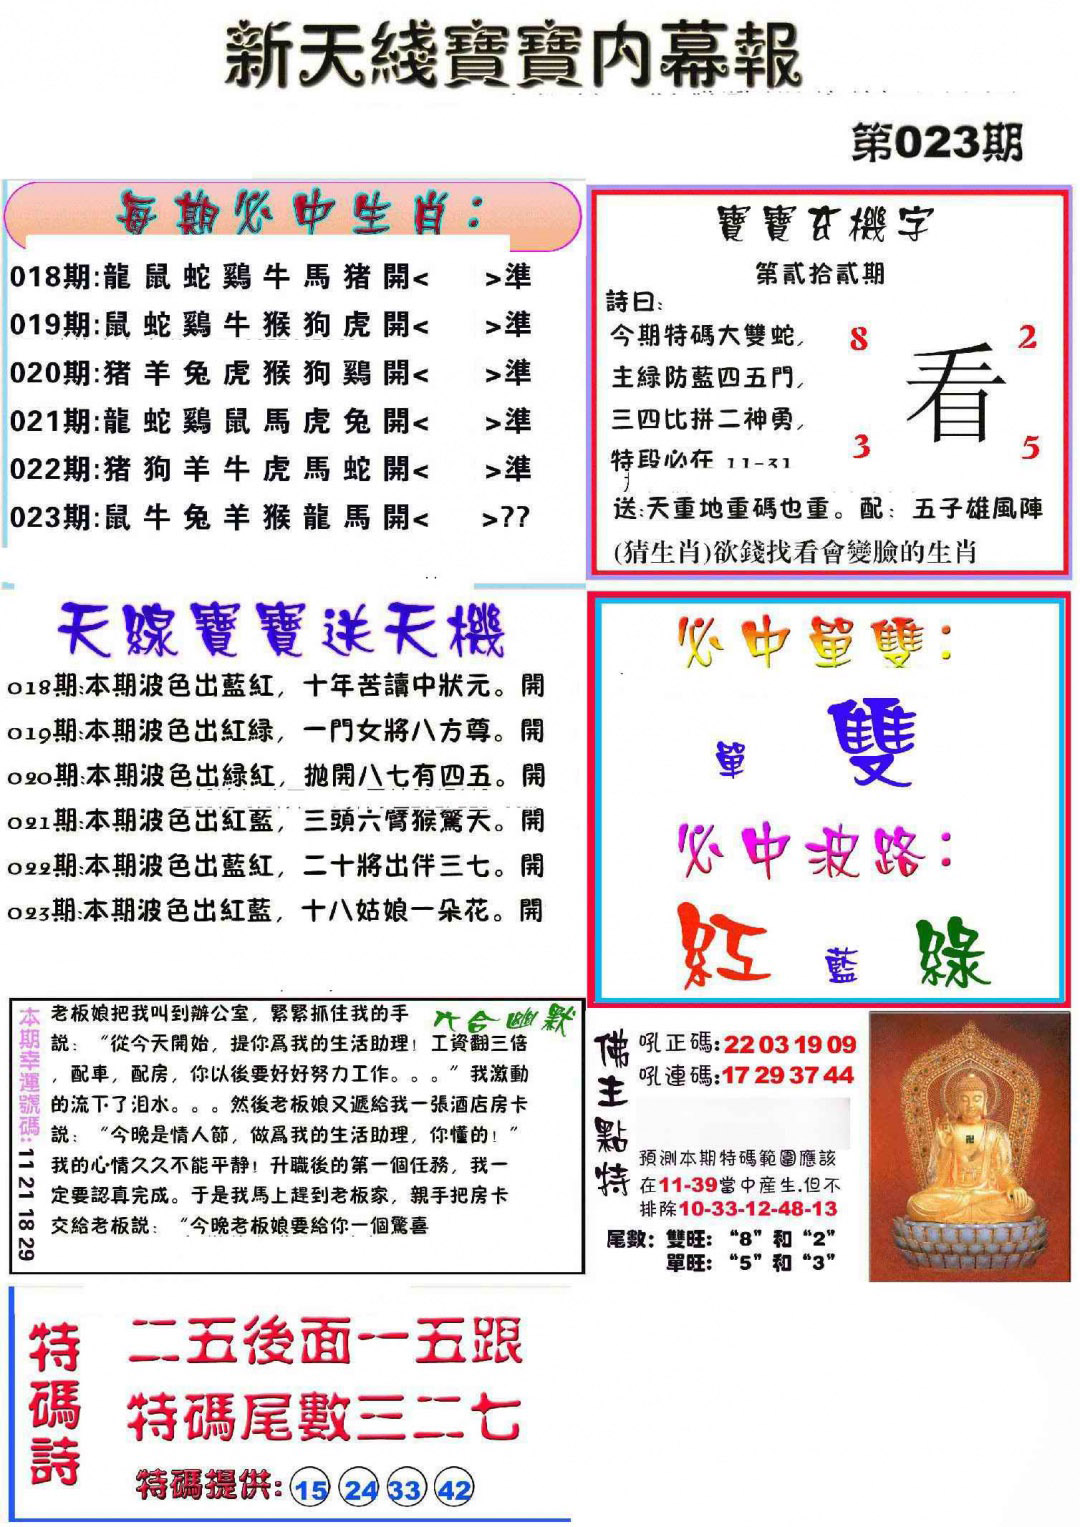 新天綫寶寶内幕報
第023期
每期必中生肖：
018期:龍鼠蛇鷄牛馬猪開< >準
019期:鼠蛇鷄牛猴狗虎開< >準
020期:猪羊兔虎猴狗鷄開< >準
021期:龍蛇鷄鼠馬虎兔開< >準
022期:猪狗羊牛虎馬蛇開< >準
023期:鼠牛兔羊猴龍馬開< >??
寶寶玄機字
第貳拾貳期
詩曰:
今期特碼大雙蛇,
主緑防藍四五門,
三四比拼二神勇,
特段必在 11-31
8 2
看
3 5
送:天重地重碼也重。配：五子雄風陣
(猜生肖)欲錢找看會變臉的生肖
天線寶寶送天機
018期:本期波色出藍紅，十年苦讀中狀元。開
019期:本期波色出紅緑，一門女將八方尊。開
020期:本期波色出緑紅，抛開八七有四五。開
021期:本期波色出紅藍，三頭六臂猴驚天。開
022期:本期波色出藍紅，二十將出伴三七。開
023期:本期波色出紅藍，十八姑娘一朵花。開
必中單雙：
單 雙
必中波路：
紅 藍 緑
本期幸運號碼: 11 21 18 29
六合幽默
老板娘把我叫到辦公室，緊緊抓住我的手
説：“從今天開始，提你爲我的生活助理！工資翻三倍
，配車，配房，你以後要好好努力工作。。。”我激動
的流下了泪水。。。然後老板娘又遞給我一張酒店房卡
説：“今晚是情人節，做爲我的生活助理，你懂的！”
我的心情久久不能平静！升職後的第一個任務，我一
定要認真完成。于是我馬上趕到老板家，親手把房卡
交給老板説：“今晚老板娘要給你一個驚喜
佛主點特
吼正碼:22 03 19 09
吼連碼:17 29 37 44
預測本期特碼範圍應該
在11-39當中産生.但不
排除10-33-12-48-13
尾數：雙旺：“8”和“2”
單旺：“5”和“3”
特碼詩
二五後面一五跟
特碼尾數三二七
特碼提供: 15 24 33 42